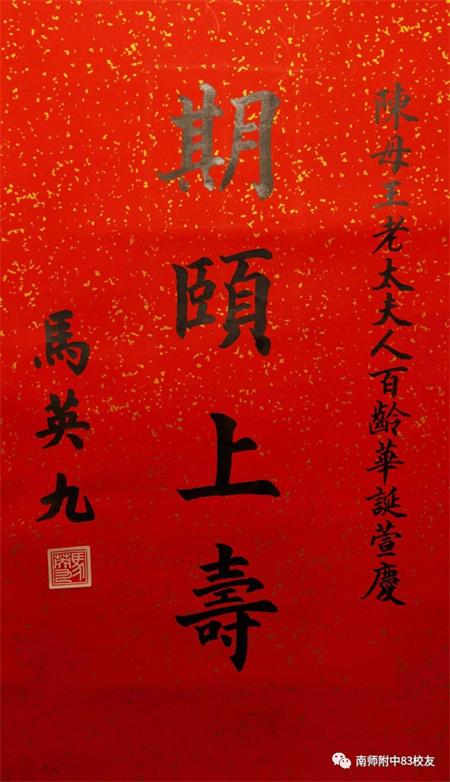 陳母王老太夫人百齡華誕萱慶
期頤上壽
馬英九
南师附中83校友